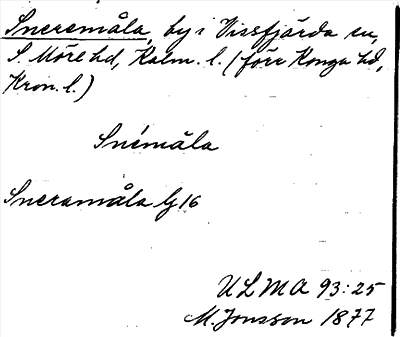 Sneremåla, by i Vissefjärda sn,
S. Möre hd, Kalm. l. (förr Konga hd,
Kron. l.)
Snémåla
Sneramåla G 16
ULMA 93:25
M. Jonsson 1877